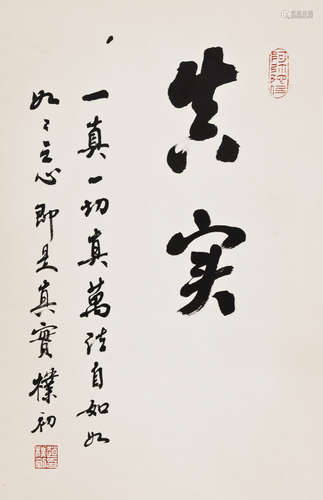 真实
一真一切真萬法自如如
如〻之心即是真實 樸初